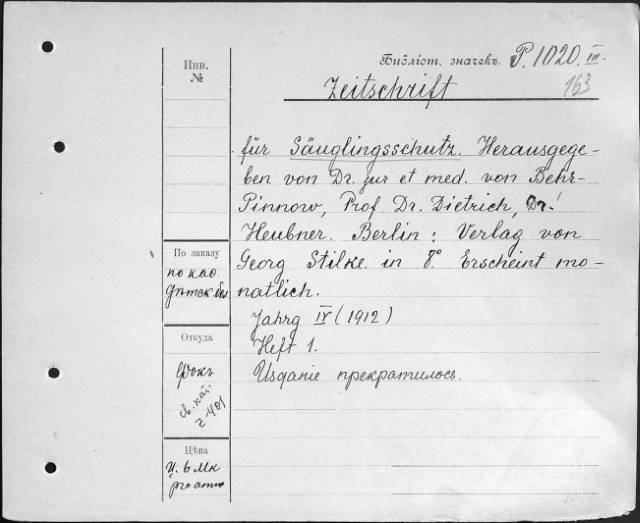 Библіот. значекъ. P. 1020. III.
163
Инв.
№
Zeitschrift
für Säuglingsschutz. Herausgege-
ben von Dr. jur et med. von Behr-
Pinnow, Prof. Dr. Dietrich, Dr.
Heubner. Berlin: Verlag von
Georg Stilke. in 8° Erscheint mo-
natlich.
Jahrg IV (1912)
Heft 1.
Изданіе прекратилось.
По заказу
Откуда
Фокъ
Цѣна